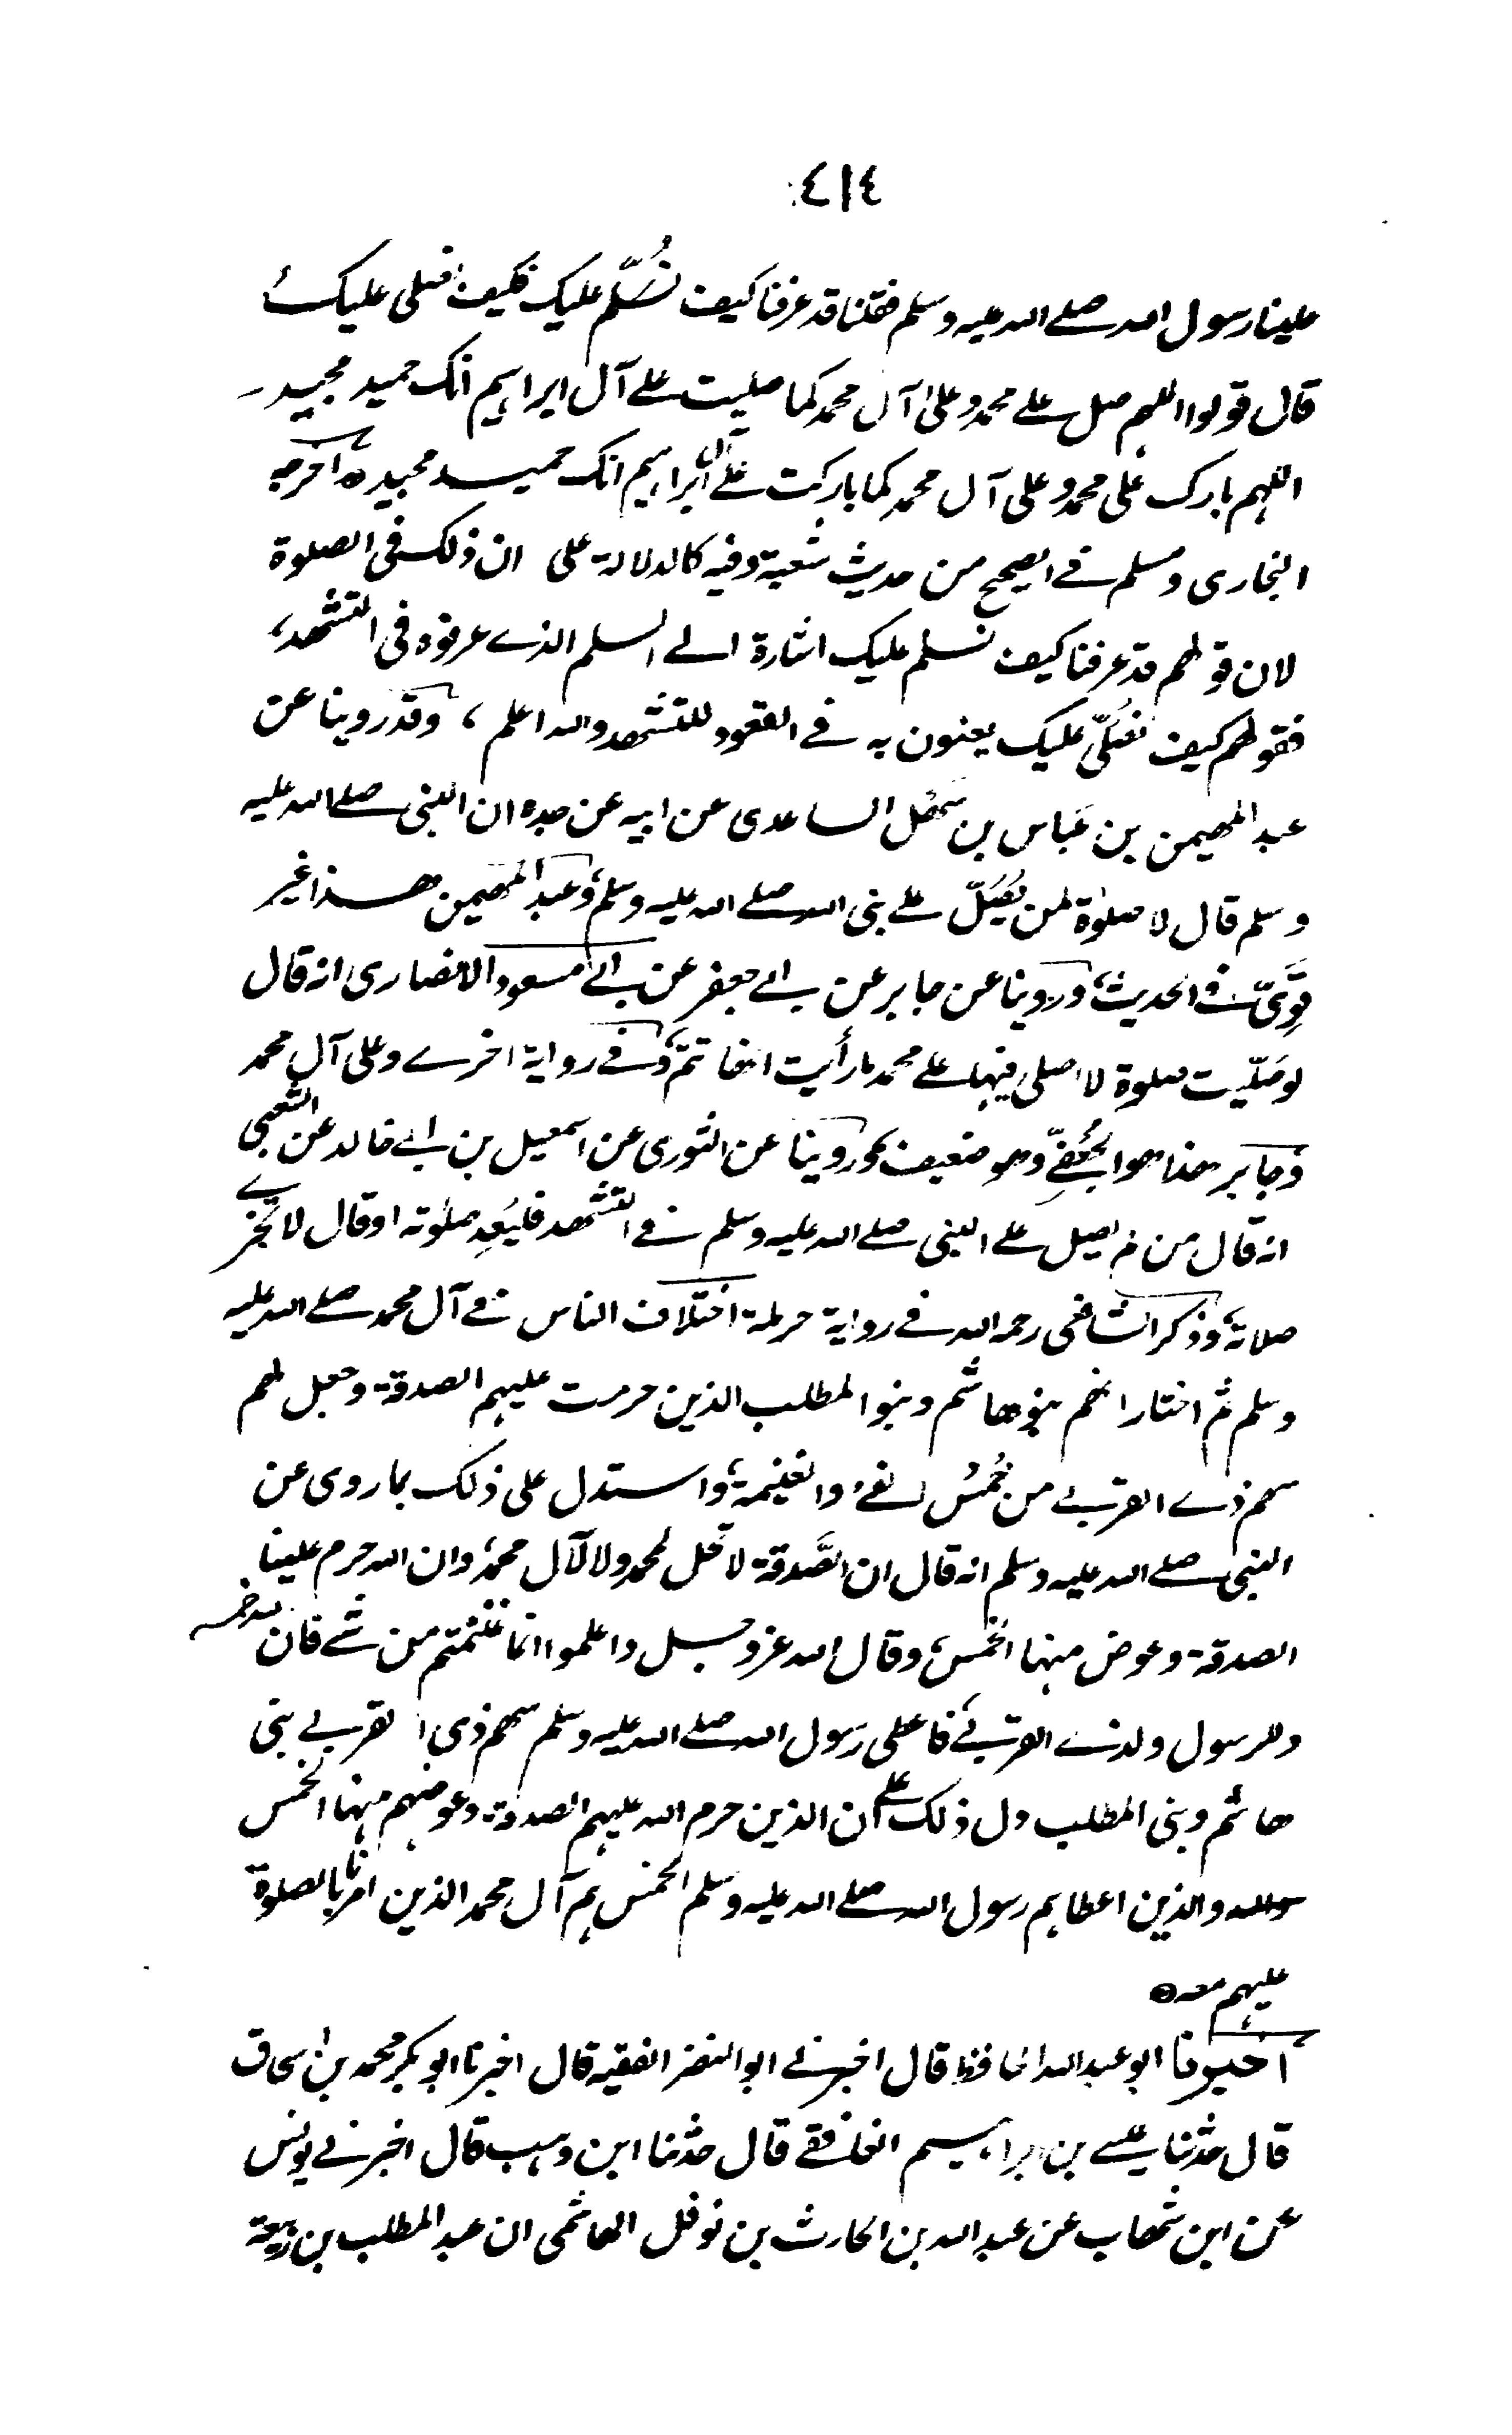 ٤١٤
علينا رسول الله صلے الله عليه وسلم فقلنا قد عرفنا كيف نُسَلّم عليك فكيف نصلى عليك
قال قولوا اللهم صل علے محمد وعلى آل محمد كما صليت علے آل ابراهيم انك حميد مجيد
اللهم بارك على محمد وعلى آل محمد كما باركت علے آل ابراهيم انك حميد مجيد، اخرجه
البخارى ومسلم فے الصحيح من حديث شعبة وفيه كالدلالة على ان ذلك فى الصلوة
لان قولهم قد عرفنا كيف نسلم عليك اشارة الے السلم الذے عرفوه فى التشهد،
فقولهم كيف نصَلّى عليك يعنون به فے القعود للتشهد والله اعلم، وقد روينا عن
عبد المهيمن بن عَباس بن سَهْل الساعدى عن ابيه عن جده ان النبى صلے الله عليه
وسلم قال لا صلوٰة لمن لم يُصَلّ علے نبى الله صلے الله عليه وسلم، وعبد المهيمن هذا غير
قوِىّ فے الحديث، وروينا عن جابر عن ابے جعفر عن ابے مسعود الانصارى انه قال
لو صَلّيت صلوة لا اصلى فيها علے محمد ما رأيت انها تتمّ، وفے رواية اخرے وعلى آل محمد
وجابر هذا هو الجُعْفِىّ وهو ضعيف، وروينا عن الثورى عن اسمعيل بن ابے خالد عن الشعبى
انه قال من لم يصل علے النبى صلے الله عليه وسلم فے التشهد فليُعِد صلوته او قال لا تجزے
صلاته، وذكر الشافعى رحمه الله فے رواية حرملة اختلاف الناس فے آل محمد صلے الله عليه
وسلم ثم اختار انهم بنو هاشم وبنو المطلب الذين حرمت عليهم الصدقة وجعل لهم
سهم ذے القربے من خُمُس الفئ والغنيمة، واستدل على ذلك بما روى عن
النبى صلے الله عليه وسلم انه قال ان الصَّدقة لا تحل لمحمد ولا لآل محمد، وان الله حرم علينا
الصدقة وعوض منها الخمس، وقال الله عز وجل واعلموا انما غنمتم من شے فان لله خمسه
وللرسول ولذے القربے فاعطى رسول الله صلے الله عليه وسلم سهم ذى القربے بنى
هاشم وبنى المطلب دل ذلك علے ان الذين حرم الله عليهم الصدقة وعوضهم منها الخمس
والذين اعطاهم رسول الله صلے الله عليه وسلم الخمس هم آل محمد الذين امرنا بالصلوة
عليهم معه
اخبرنا ابو عبد الله الحافظ قال اخبرنے ابو النضر الفقيه قال اخبرنا ابو بكر محمد بن اسحاق
قال حدثنا عيسے بن ابراهيم الغافقے قال حدثنا ابن وهب قال اخبرنے يونس
عن ابن شهاب عن عبد الله بن الحارث بن نوفل الهاشمى ان عبد المطلب بن ربيعة